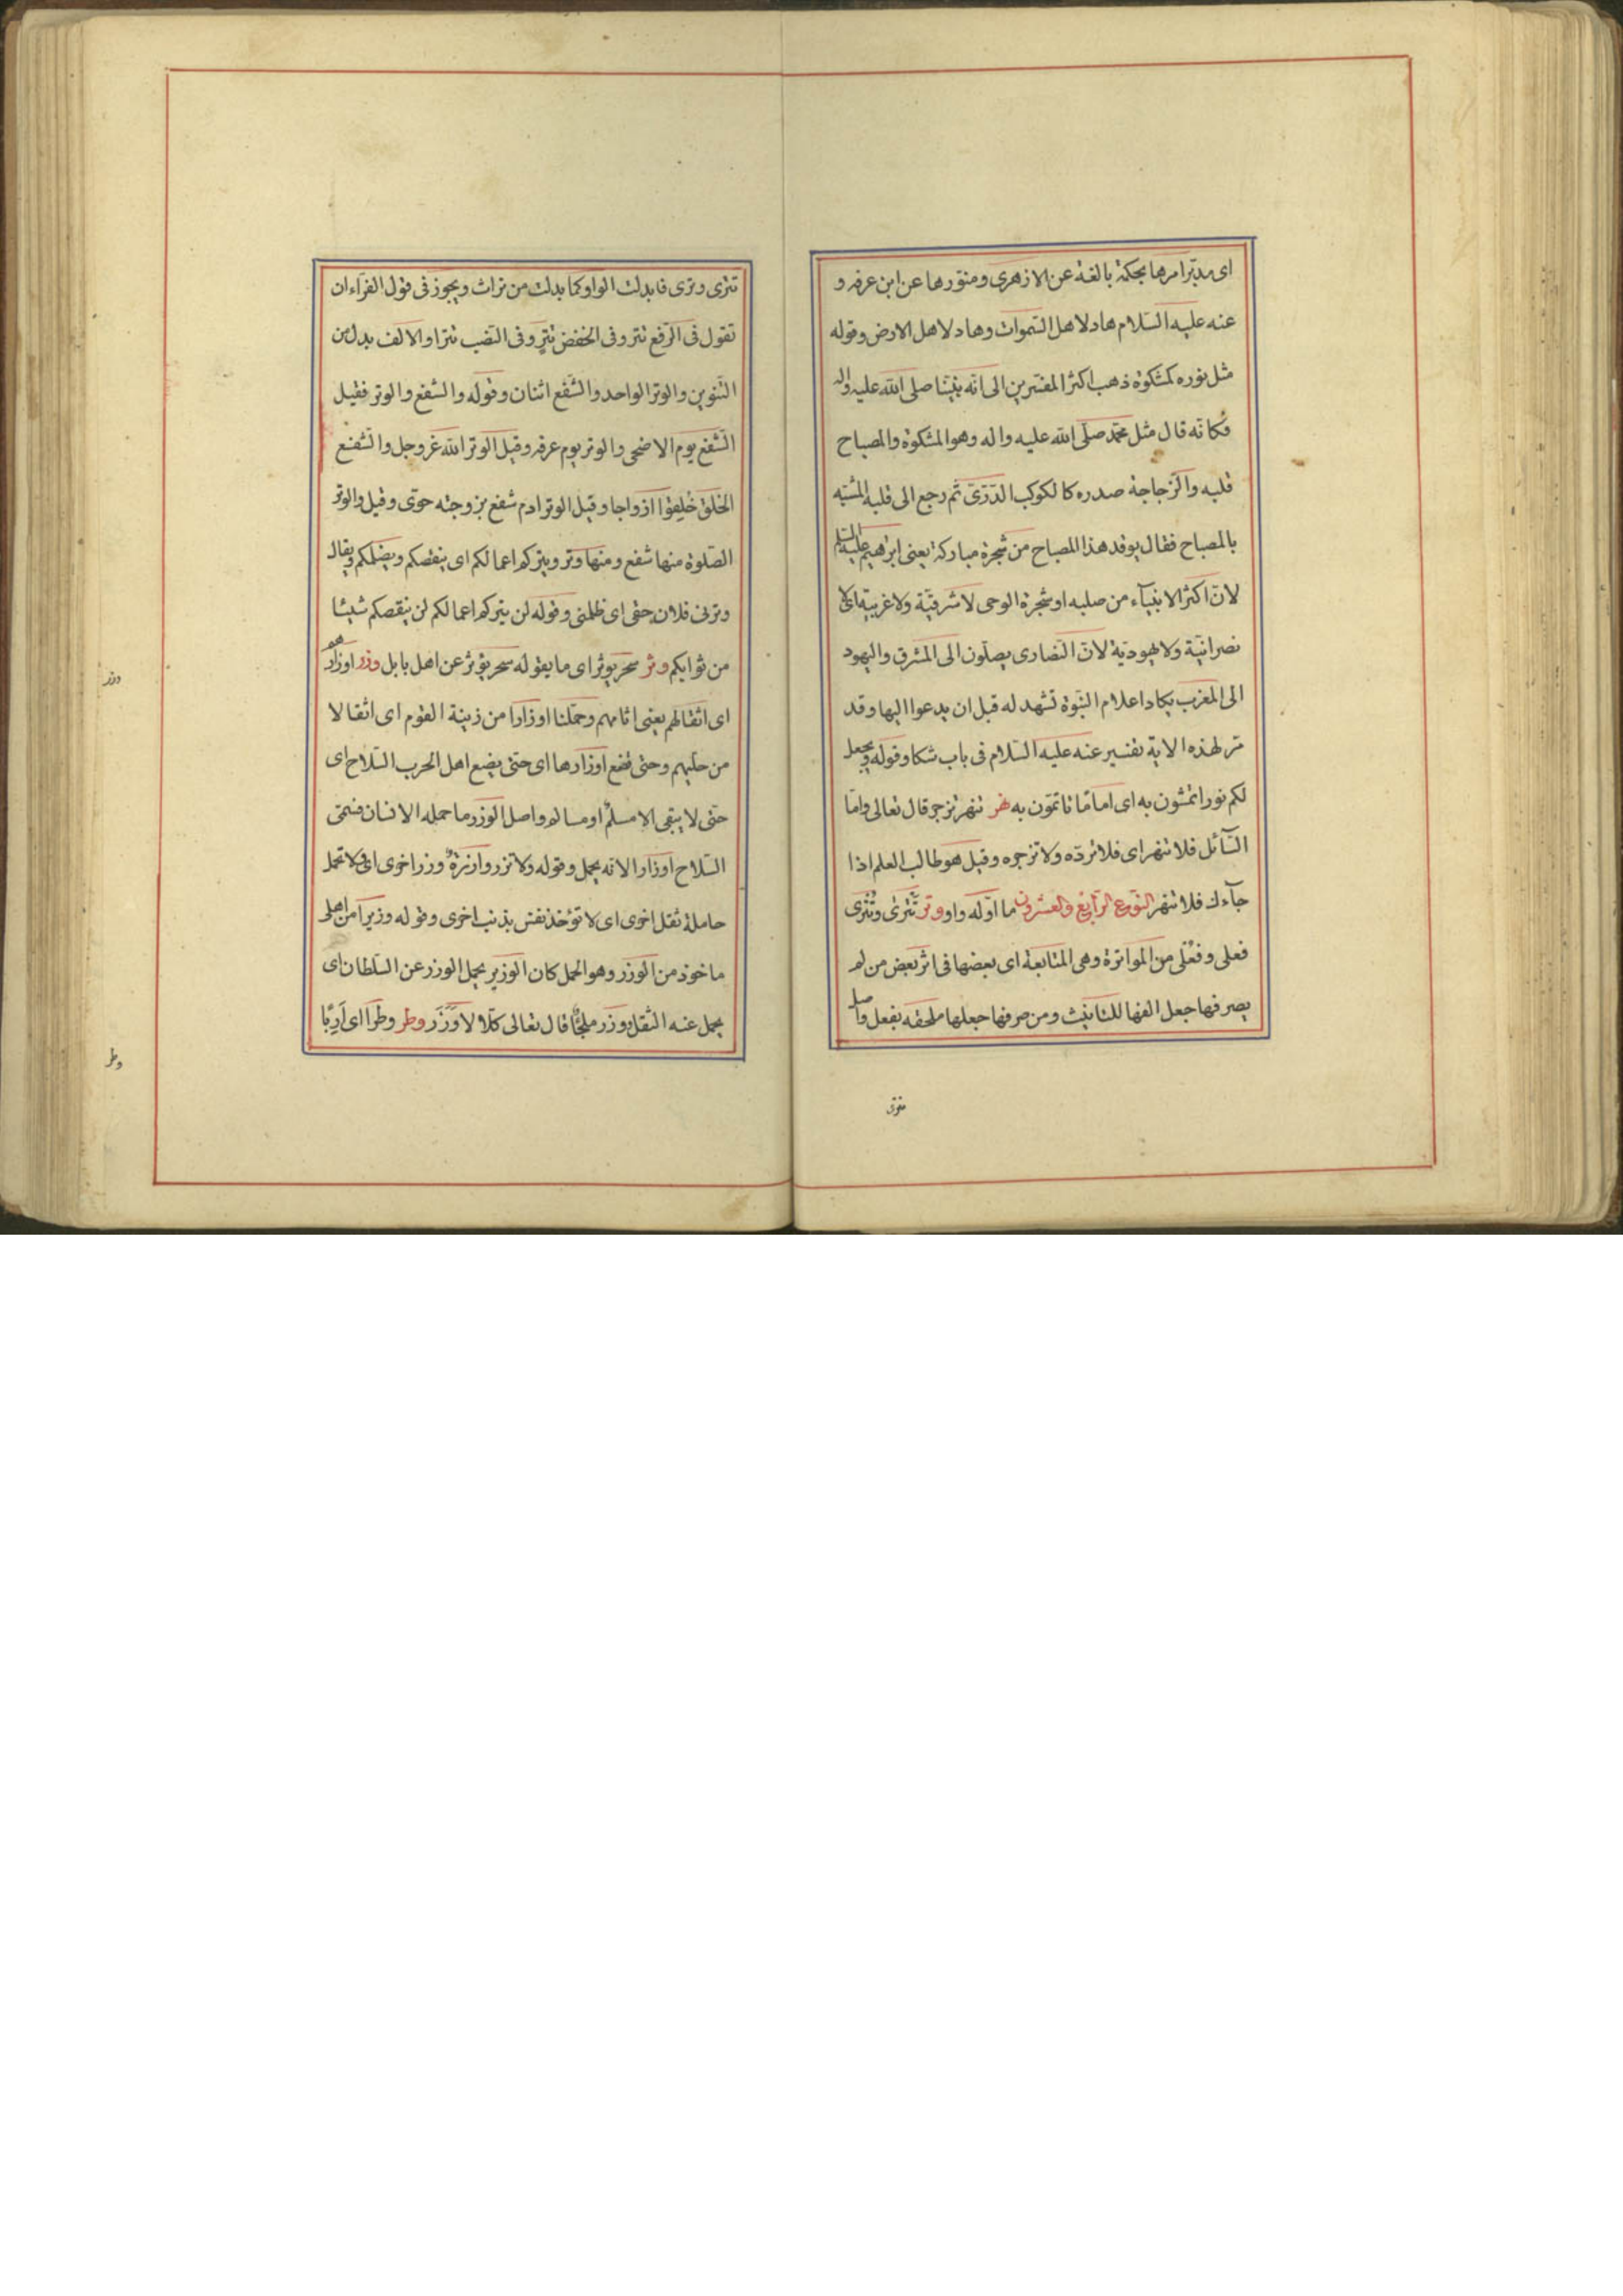 اى مدبّر امرها بحكمة بالغة عن الازهرى ومنوّرها عن ابن عرفه و
عنه عليه السّلام هاد لاهل السّموات وهاد لاهل الارض وقوله
مثل نوره كمشكوة ذهب اكثر المفسّرين الى انّه نبيّنا صلى الله عليه واله
فكانّه قال مثل محمّد صلّى الله عليه واله وهو المشكوة والمصباح
قلبه والزّجاجة صدره كالكوكب الدّرّى ثم رجع الى قلبه المشبّه
بالمصباح فقال يوقد هذا المصباح من شجرة مباركة يعنى ابرهيم عليه السّلم
لانّ اكثر الانبيآء من صلبه او شجرة الوحى لا شرقيّة ولا غربيّة اى لا
نصرانيّة ولا يهوديّة لانّ النّصارى يصلّون الى المشرق واليهود
الى المغرب يكاد اعلام النّبوّة تشهد له قبل ان يدعوا اليها وقد
مرّ لهذه الاية تفسير عنه عليه السّلام فى باب شكا وقوله ويجعل
لكم نورا تمشون به اى امامًا تاتمّون به نهر تنهر تزجر قال تعالى وامّا
السّآئل فلا تنهر اى فلا تردّه ولا تزجره وقيل هو طالب العلم اذا
جآءك فلا تنهر النّوع الرّابع والعشرون ما اوّله واو وتر تَتْرَىٰ وتَتْرَى
فعلى وفعلى من المواترة وهى المتابعة اى بعضها فى اثر بعض من لم
يصرفها جعل الفها للتانيث ومن صرفها جعلها ملحقه بفعل واصل
تترى وترى فابدلت الواو كما بدلت من تراث ويجوز فى قول الفرّاء ان
تقول فى الرّفع تتر وفى الخفض تترٍ وفى النّصب تترا والالف بدل من
التّنوين والوتر الواحد والشّفع اثنان وقوله والشّفع والوتر فقيل
الشّفع يوم الاضحى والوتر يوم عرفه وقيل الوتر الله عزوجل والشّفع
الخلق خُلِقوا ازواجا وقيل الوتر ادم شفع بزوجته حوّى وقيل والوتر
الصّلوة منها شفع ومنها وتر ويتركم اعمالكم اى ينقصكم ويضلكم ويقال
وترنى فلان حقى اى ظلمنى وقوله لن يتركم اعمالكم لن ينقصكم شيئا
من ثوابكم وثر سحر يوثر اى ما يقوله سحر يؤثر عن اهل بابل وزر اوزارهم
اى اثقالهم يعنى اثامهم وحمّلنا اوزارا من زينة القوم اى اثقالا
من حليهم وحتى تضع اوزارها اى حتى يضع اهل الحرب السّلاح اى
حتى لا يبقى الا مسلم او مسالم واصل الوزر ما حمله الانسان فسمّى
السّلاح اوزارا لانه يحمل وقوله ولا تزر وازرةٌ وزر اخرى اى ولا تحمل
حاملة ثقل اخرى اى لا تؤخذ نفس بذنب اخرى وقوله وزيرًا من اهلى
ماخوذ من الوزر وهو الحمل كان الوزير يحمل الوزر عن السّلطان اى
يحمل عنه الثقل ووزر ملجئًا قال تعالى كلّا لا وَزَر وطر وطرًا اى اَرَبًا
وزر
وطر